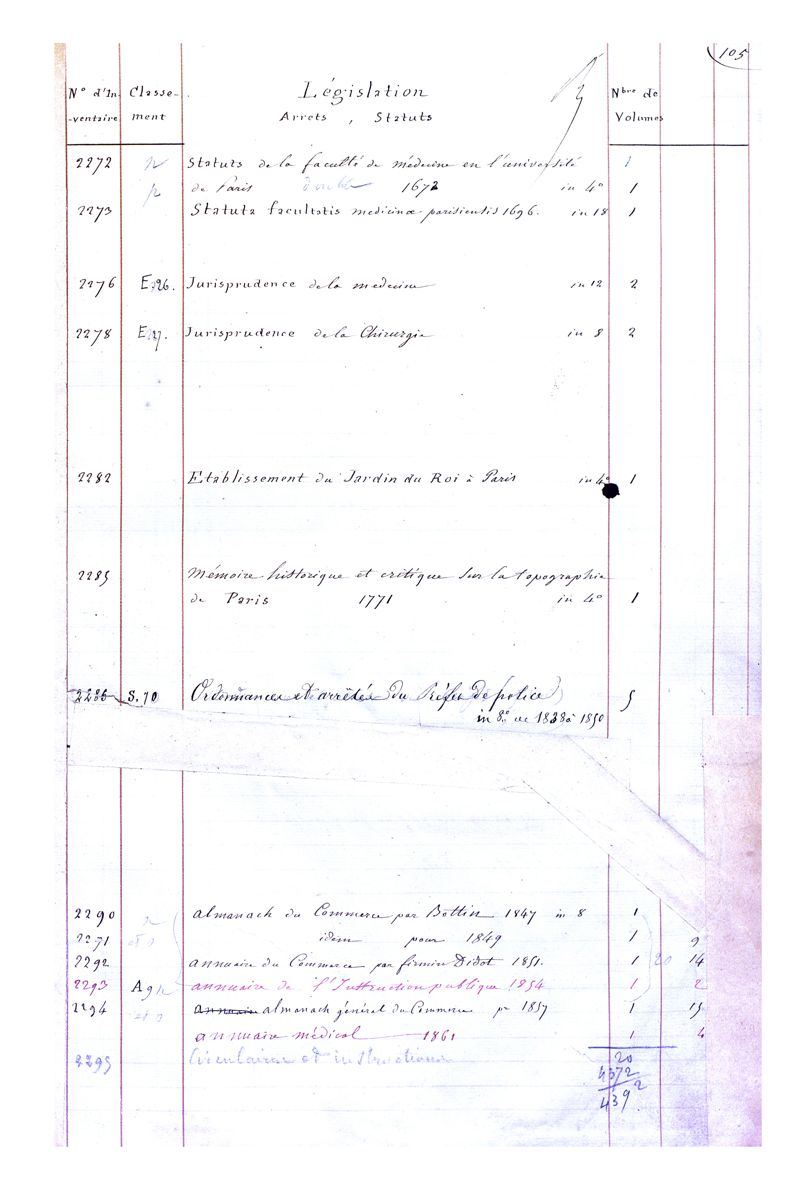 105
N° d'In- Classe- Législation Nbre de
-ventaire ment Arrets, Statuts Volumes
2272 Statuts de la faculté de médecine en l'université 1
p de Paris double 1672 in 4° 1
2273 Statuta facultatis medicinæ parisiensis 1696. in 18 1
2276 E126. Jurisprudence de la medecine in 12 2
2278 E127. Jurisprudence de la Chirurgie in 8 2
2282 Etablissement du Jardin du Roi à Paris in 4° 1
2285 Mémoire historique et critique sur la topographie
de Paris 1771 in 4° 1
2286 S.70 Ordonnances et arrêtés du Préfet de police 5
in 8° de 1838 à 1850
2290 almanach du Commerce par Bottin 1847 in 8 1
2291 idem pour 1849 1 9
2292 annuaire du Commerce par firmin Didot 1851. 1 20 14
2293 A9 annuaire de l'Instruction publique 1854 1 2
2294 Annuaire almanach général du Commerce pr 1857 1 15
annuaire médical 1861 1 4
2295 Circulaires et instructions 20
4372
4392